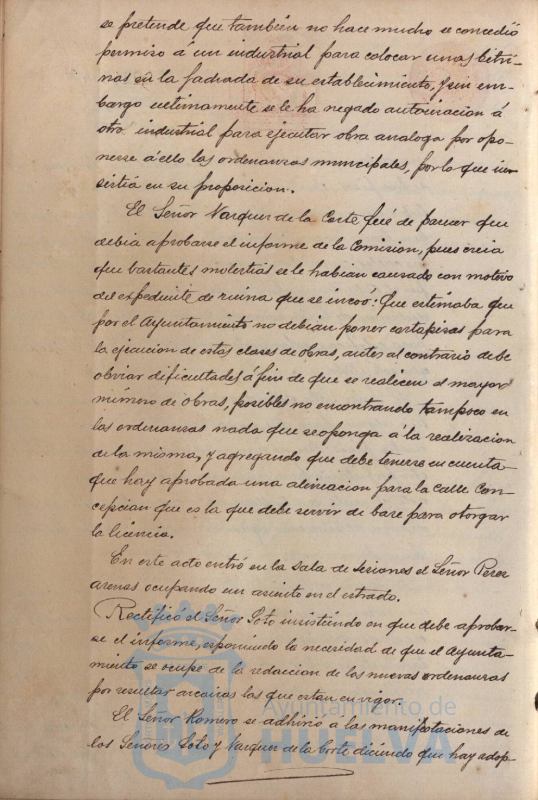 se pretende que tambien no hace mucho se concedió
permiso á un industrial para colocar unas bitri-
nas en la fachada de su establecimiento, y sin em-
bargo ultimamente se le ha negado autorizacion á
otro industrial para ejecutar obra analoga por opo-
nerse á ello las ordenanzas municipales, por lo que in-
sistia en su proposicion.
El Señor Vazquez de la Corte fué de parecer que
debia aprobarse el informe de la Comision, pues creia
que bastantes molestias se le habian causado con motivo
del expediente de ruina que se incoó: Que estimaba que
por el Ayuntamiento no debian poner cortapisas para
la ejecucion de estas clases de obras, antes al contrario debe
obviar dificultades á fin de que se realicen el mayor
número de obras, posibles no encontrando tampoco en
las ordenanzas nada que se oponga á la realizacion
de la misma, y agregando que debe tenerse en cuenta
que hay aprobada una alineacion para la Calle Con-
cepcion que es la que debe servir de base para otorgar
la licencia.
En este acto entró en la Sala de Sesiones el Señor Perez
arenas ocupando un asiento en el estrado.
Rectificó el Señor Soto insistiendo en que debe aprobar-
se el informe, exponiendo la necesidad de que el Ayunta-
miento se ocupe de la redaccion de las nuevas ordenanzas
por resultar arcaicas las que estan en vigor.
El Señor Romero se adhirió á las manifestaciones de
los Señores Soto y Vazquez de la Corte diciendo que hay adop-
Ayuntamiento de
HUELVA